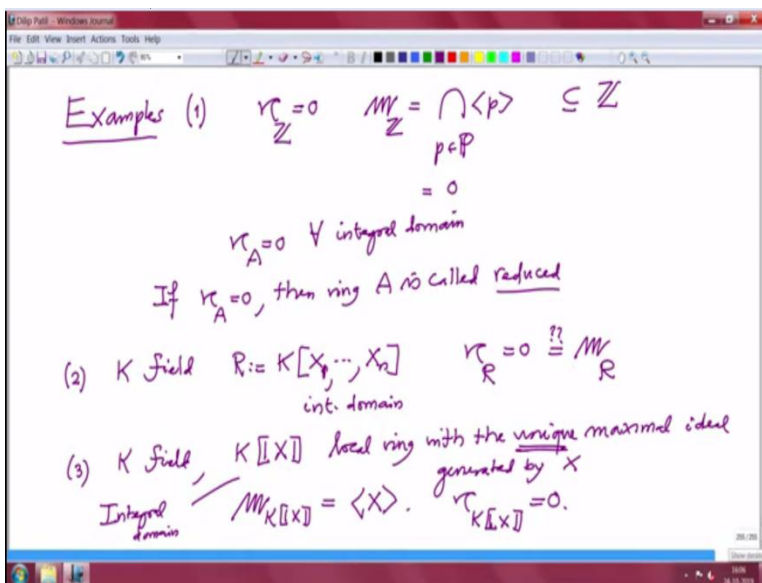 Dilip Patil - Windows Journal
File Edit View Insert Actions Tools Help
Examples (1) 𝔫_ℤ = 0 𝔪_ℤ = ⋂_{p∈ℙ} <p> ⊆ ℤ
= 0
𝔫_A = 0 ∀ integral domain
If 𝔫_A = 0, then ring A is called reduced
(2) K field R := K[X_1, ..., X_n] 𝔫_R = 0 =^{??} 𝔪_R
int. domain
(3) K field, K⟦X⟧ local ring with the unique maximal ideal
generated by X
Integral domain
𝔪_{K⟦X⟧} = <X>. 𝔫_{K⟦X⟧} = 0.
255 / 255
16:06